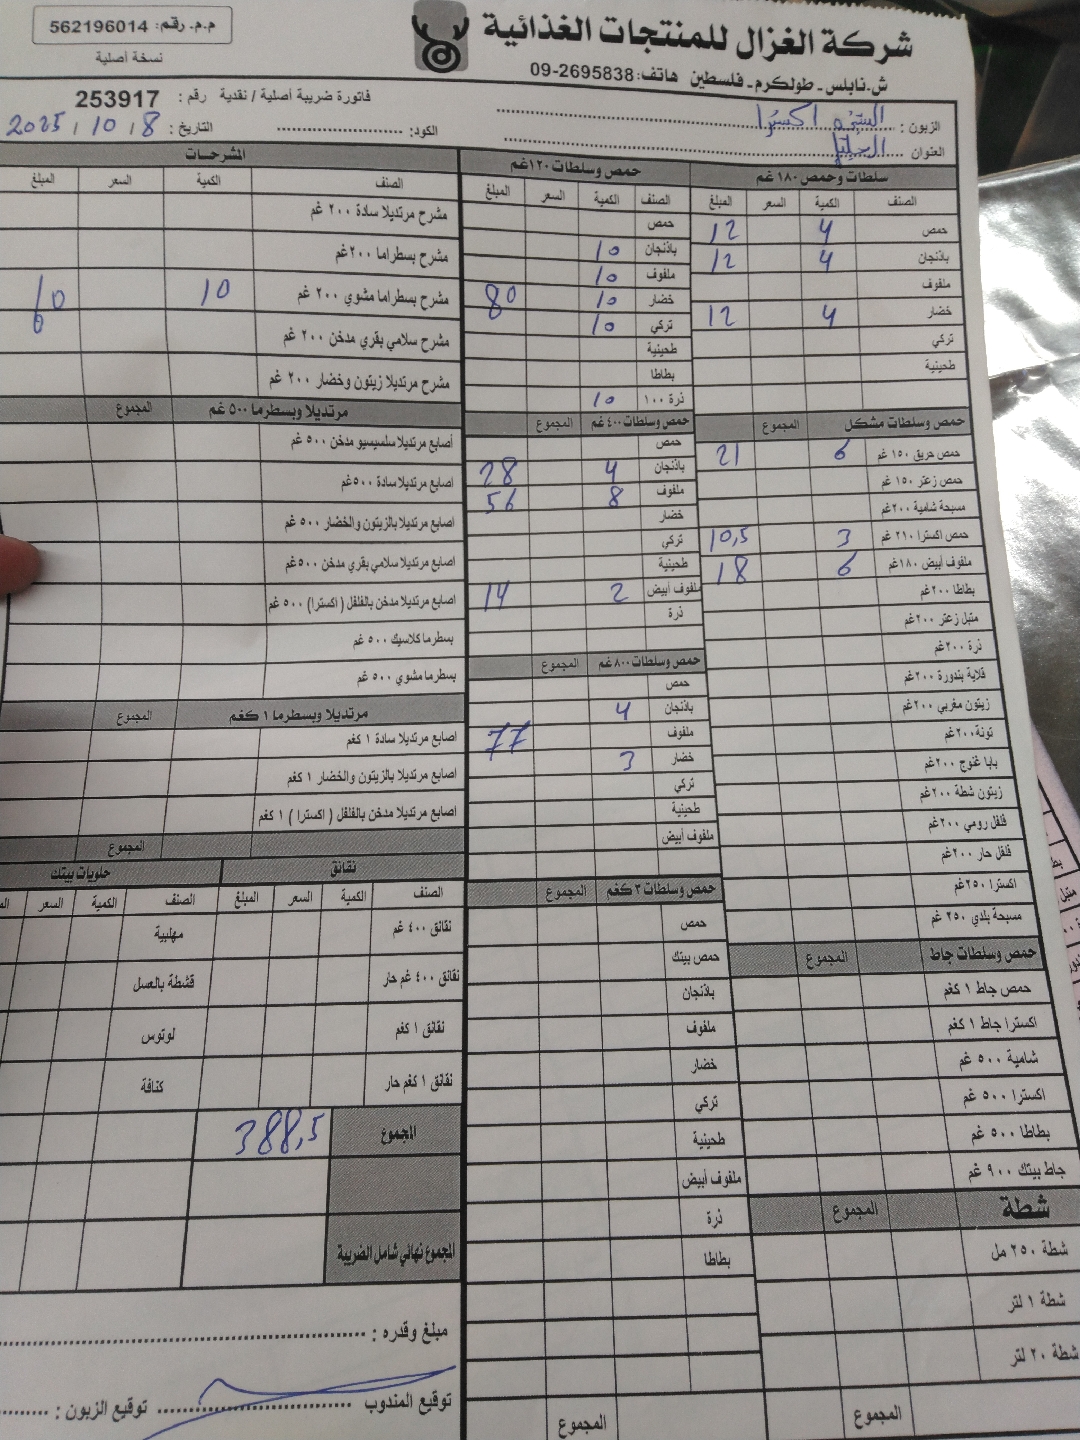 م.م. رقم: 562196014
نسخة أصلية
شركة الغزال للمنتجات الغذائية
ش.نابلس - طولكرم - فلسطين هاتف: 09-2695838
فاتورة ضريبة أصلية / نقدية رقم : 253917
الزبون : اكسترا
العنوان
الكود: التاريخ : 8 / 10 / 2025
سلطات وحمص ١٨٠ غم
الصنف الكمية السعر المبلغ
حمص 4 12
باذنجان 4 12
ملفوف
خضار 4 12
تركي
طحينية
حمص وسلطات مشكل المجموع
حمص حريق ١٥٠ غم 6 21
حمص زعتر ١٥٠ غم
مسبحة شامية ٢٠٠غم
حمص اكسترا ٢١٠ غم 3 10,5
ملفوف أبيض ١٨٠غم 6 18
بطاطا ٢٠٠غم
متبل زعتر ٢٠٠غم
ذرة ٢٠٠غم
قلاية بندورة ٢٠٠غم
زيتون مغربي ٢٠٠غم
تونة٢٠٠غم
بابا غنوج ٢٠٠غم
زيتون شطة ٢٠٠غم
فلفل رومي ٢٠٠غم
فلفل حار ٢٠٠غم
اكسترا ٢٥٠غم
مسبحة بلدي ٢٥٠ غم
حمص وسلطات جاط المجموع
حمص جاط ١ كغم
اكسترا جاط ١ كغم
شامية ٥٠٠ غم
اكسترا ٥٠٠ غم
بطاطا ٥٠٠ غم
جاط بيتك ٩٠٠ غم
شطة المجموع
شطة ٢٥٠ مل
شطة ١ لتر
شطة ٢٠ لتر
المجموع
حمص وسلطات ١٢٠غم
الصنف الكمية السعر المبلغ
حمص
باذنجان 10
ملفوف 10
خضار 10 80
تركي 10
طحينية
بطاطا
ذرة ١٠٠ 10
حمص وسلطات ٤٠٠ غم المجموع
حمص
باذنجان 4 28
ملفوف 8 56
خضار
تركي
طحينية
ملفوف أبيض 2 14
ذرة
حمص وسلطات ٨٠٠ غم المجموع
حمص
باذنجان 4
ملفوف 77
خضار 3
تركي
طحينية
ملفوف أبيض
حمص وسلطات ٣ كغم المجموع
حمص
حمص بيتك
باذنجان
ملفوف
خضار
تركي
طحينية
ملفوف أبيض
ذرة
بطاطا
المجموع
المشرحات
الصنف الكمية السعر المبلغ
مشرح مرتديلا سادة ٢٠٠ غم
مشرح بسطراما ٢٠٠غم
مشرح بسطراما مشوي ٢٠٠ غم 10
مشرح سلامي بقري مدخن ٢٠٠ غم
مشرح مرتديلا زيتون وخضار ٢٠٠ غم
مرتديلا وبسطرما ٥٠٠ غم المجموع
أصابع مرتديلا سلسيسيو مدخن ٥٠٠ غم
اصابع مرتديلا سادة ٥٠٠غم
اصابع مرتديلا بالزيتون والخضار ٥٠٠ غم
اصابع مرتديلا سلامي بقري مدخن ٥٠٠غم
اصابع مرتديلا مدخن بالفلفل ( اكسترا) ٥٠٠ غم
بسطرما كلاسيك ٥٠٠ غم
بسطرما مشوي ٥٠٠ غم
مرتديلا وبسطرما ١ كغم المجموع
اصابع مرتديلا سادة ١ كغم
اصابع مرتديلا بالزيتون والخضار ١ كغم
اصابع مرتديلا مدخن بالفلفل ( اكسترا ) ١ كغم
المجموع
نقانق
الصنف الكمية السعر المبلغ
نقانق ٤٠٠ غم
نقانق ٤٠٠ غم حار
نقانق ١ كغم
نقانق ١ كغم حار
حلويات بيتك
الصنف الكمية السعر
مهلبية
قشطة بالعسل
لوتوس
كنافة
المجموع 388,5
المجموع نهائي شامل الضريبة
مبلغ وقدره :
توقيع المندوب توقيع الزبون :